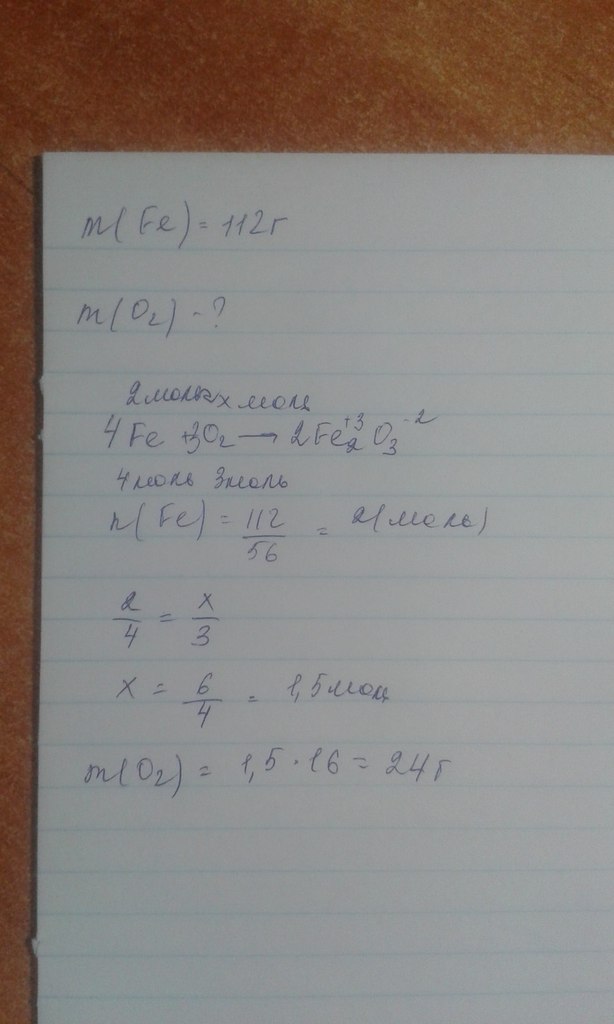 m(Fe) = 112г
m(O₂) - ?
2моль x моль
4Fe + 3O₂ → 2Fe₂⁺³O₃⁻²
4моль 3моль
n(Fe) = 112/56 = 2(моль)
2/4 = x/3
x = 6/4 = 1,5моль
m(O₂) = 1,5 · 16 = 24г